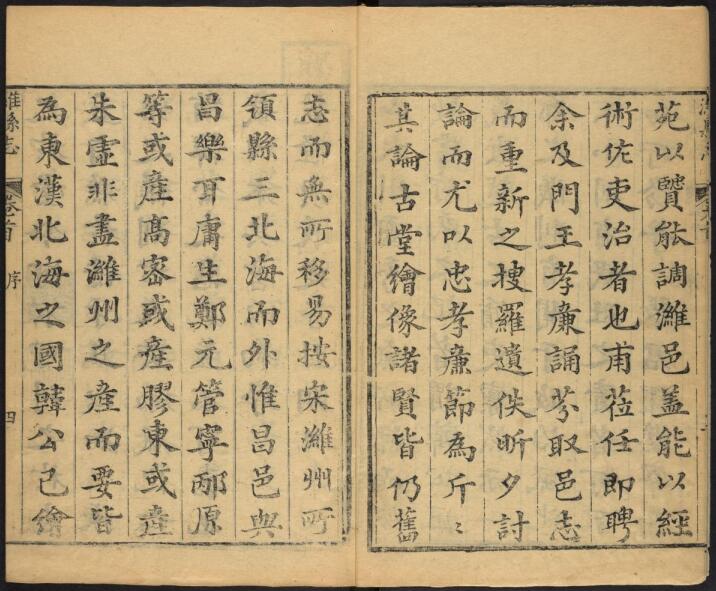 苑以賢能調濰邑盖能以經
術佐吏治者也甫莅任即聘
余及門王孝廉誦芬取邑志
而重新之搜羅遺佚昕夕討
論而尤以忠孝廉節為斤〻
其論古堂繪像諸賢皆仍舊
志而無所移易按宋濰州所
領縣三北海而外惟昌邑與
昌樂耳庸生鄭元管寧邴原
等或產高密或產膠東或產
朱虛非盡濰州之產而要皆
為東漢北海之國韓公已繪
濰縣志 卷首 序 四